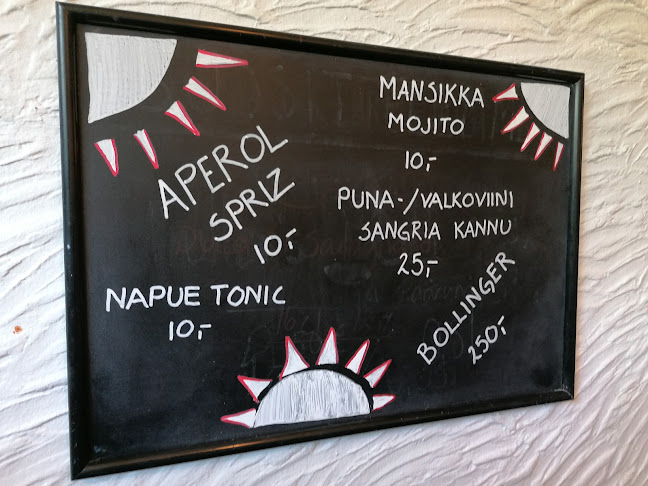 APEROL
SPRIZ
10,-
NAPUE TONIC
10,-
MANSIKKA
MOJITO
10,-
PUNA-/VALKOVIINI
SANGRIA KANNU
25,-
BOLLINGER
250,-